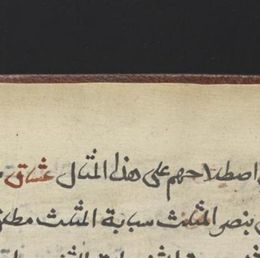 اصطلاحهم على هذا المثال عشاق
بنصر المثلث سبابة المثلث مطلق